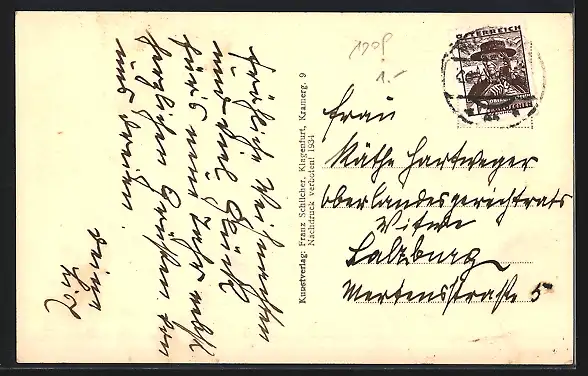 Fröhliche Weihnachten
und viel Glück
fürs neue Jahr nebst
herzlichen Grüßen von
uns dreien.
Kunstverlag: Franz Schilcher, Klagenfurt, Kramerg. 9
Nachdruck verboten! 1934
1.-
ÖSTERREICH
Frau
Käthe Hartweger
Oberlandesgerichtsrats
Witwe
Salzburg
Mertensstraße 5